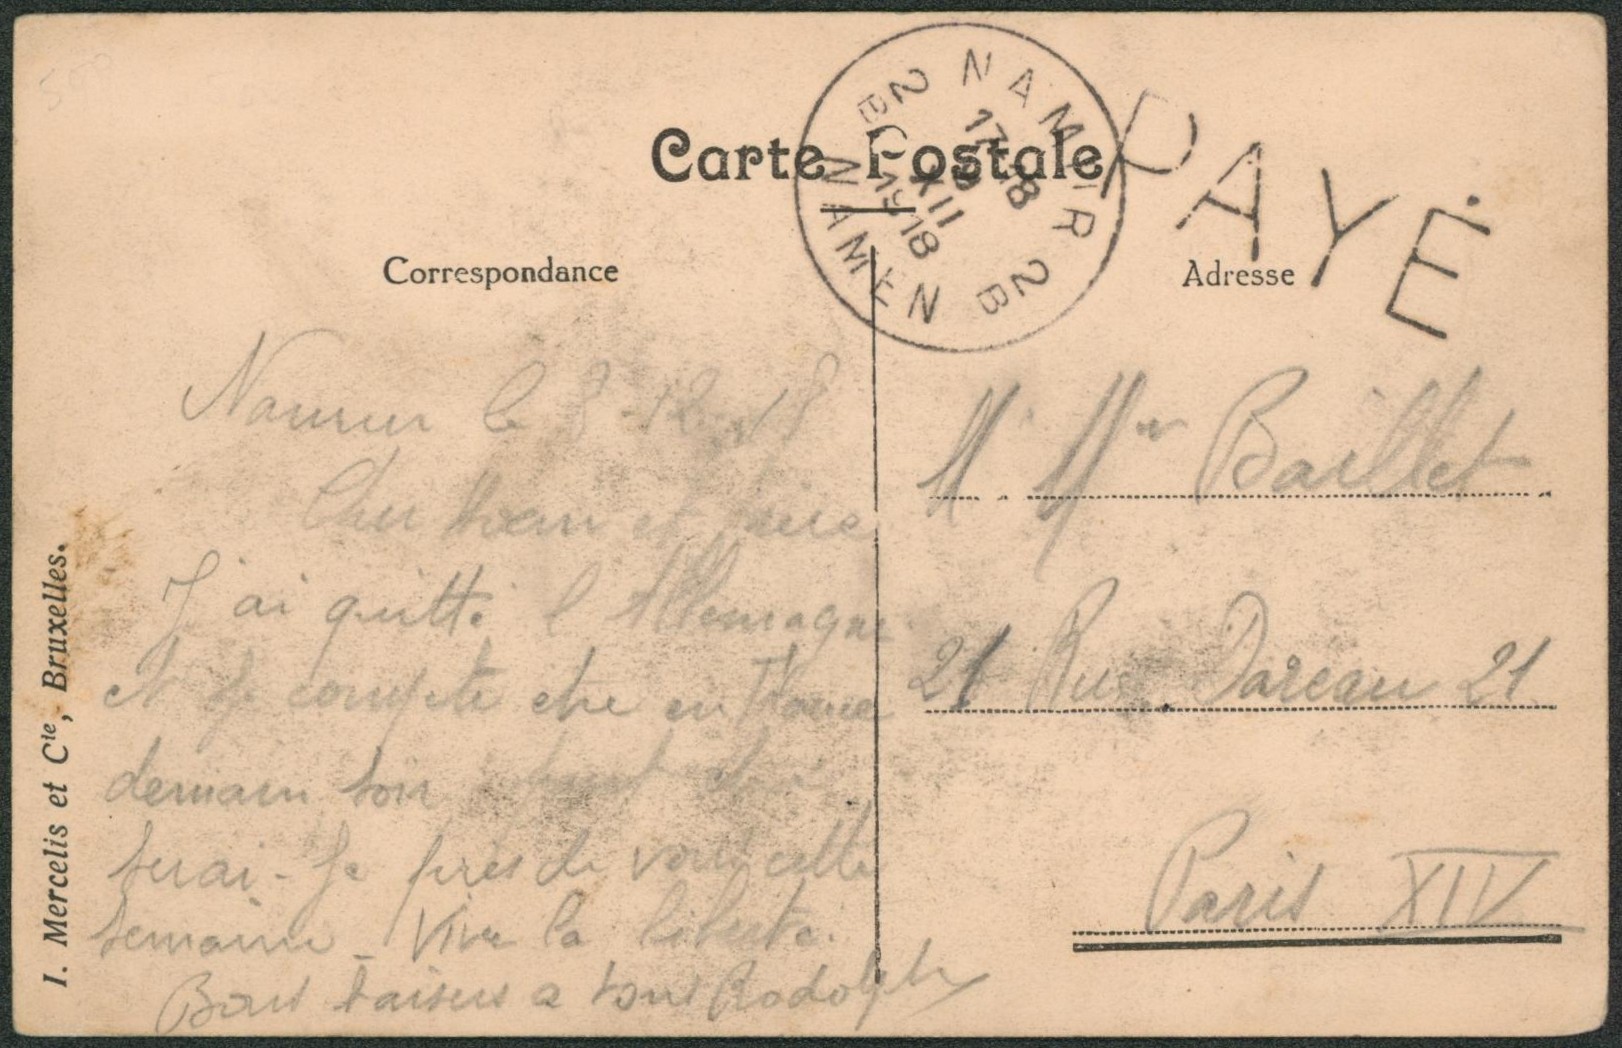 Carte Postale
NAMUR 2B
17-18
XII
1918
NAMEN 2B
PAYÉ
Correspondance
Adresse
Namur le 8-12-18
Cher et
J'ai quitté l'Allemagne
et je compte etre en France
demain soir
serai-je près de vous cette
semaine. Vive la liberté.
Bons baisers a tous Rodolphe
M. Mme Baillet
21 Rue Dareau 21
Paris XIV
I. Mercelis et Cie, Bruxelles.